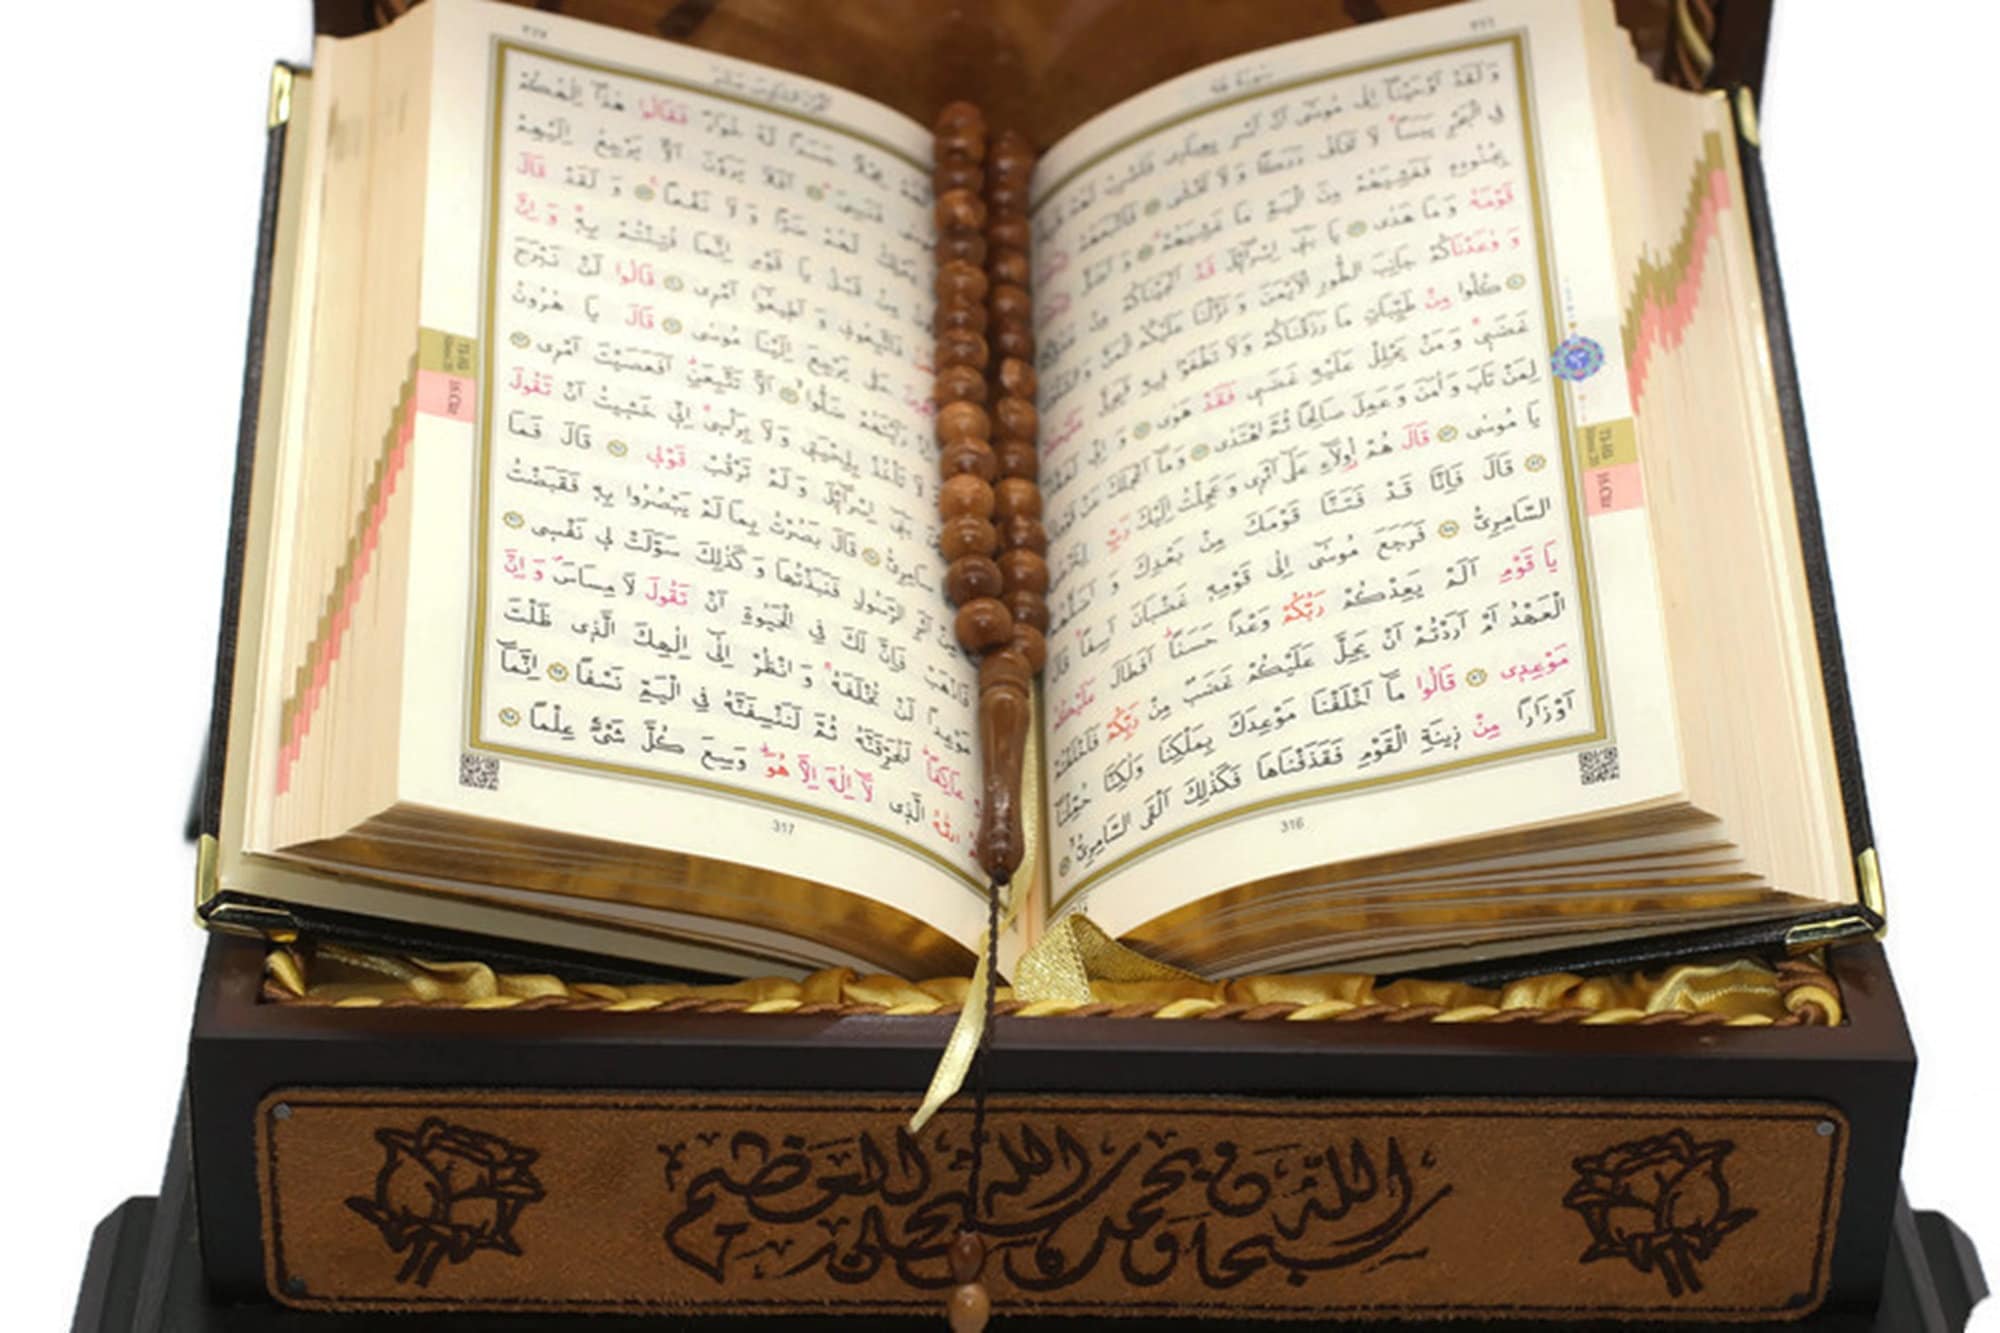 ٣١٦
سورة طه
وَلَقَدْ اَوْحَيْنَٓا اِلٰى مُوسٰٓى اَنْ اَسْرِ بِعِبَادٖى فَاضْرِبْ لَهُمْ
فِي الْبَحْرِ يَبَسًا لَا تَخَافُ دَرَكًا وَلَا تَخْشٰى فَاَتْبَعَهُمْ
بِجُنُودِهٖ فَغَشِيَهُمْ مِنَ الْيَمِّ مَا غَشِيَهُمْ وَاَضَلَّ
قَوْمَهُ وَمَا هَدٰى يَا بَنٖٓى اِسْرَٓائٖلَ قَدْ اَنْجَيْنَاكُمْ مِنْ
وَوٰعَدْنَاكُمْ جَانِبَ الطُّورِ الْاَيْمَنَ وَنَزَّلْنَا عَلَيْكُمُ الْمَنَّ
كُلُوا مِنْ طَيِّبَاتِ مَا رَزَقْنَاكُمْ وَلَا تَطْغَوْا فٖيهِ فَيَحِلَّ
غَضَبٖى وَمَنْ يَحْلِلْ عَلَيْهِ غَضَبٖى فَقَدْ هَوٰى وَاِنّٖى
لِمَنْ تَابَ وَاٰمَنَ وَعَمِلَ صَالِحًا ثُمَّ اهْتَدٰى وَمَٓا اَعْجَلَكَ عَنْ
يَا مُوسٰى قَالَ هُمْ اُولَٓاءِ عَلٰٓى اَثَرٖى وَعَجِلْتُ اِلَيْكَ رَبِّ
قَالَ فَاِنَّا قَدْ فَتَنَّا قَوْمَكَ مِنْ بَعْدِكَ وَاَضَلَّهُمُ
السَّامِرِيُّ فَرَجَعَ مُوسٰٓى اِلٰى قَوْمِهٖ غَضْبَانَ اَسِفًا قَالَ
يَا قَوْمِ اَلَمْ يَعِدْكُمْ رَبُّكُمْ وَعْدًا حَسَنًا اَفَطَالَ عَلَيْكُمُ
الْعَهْدُ اَمْ اَرَدْتُمْ اَنْ يَحِلَّ عَلَيْكُمْ غَضَبٌ مِنْ رَبِّكُمْ فَاَخْلَفْتُمْ
مَوْعِدٖى قَالُوا مَٓا اَخْلَفْنَا مَوْعِدَكَ بِمَلْكِنَا وَلٰكِنَّا حُمِّلْنَٓا
اَوْزَارًا مِنْ زٖينَةِ الْقَوْمِ فَقَذَفْنَاهَا فَكَذٰلِكَ اَلْقَى السَّامِرِيُّ
316
٣١٧
لَهُمْ عِجْلًا جَسَدًا لَهُ خُوَارٌ فَقَالُوا هٰذَٓا اِلٰهُكُمْ
فَنَسِيَ اَفَلَا يَرَوْنَ اَلَّا يَرْجِعُ اِلَيْهِمْ
يَمْلِكُ لَهُمْ ضَرًّا وَلَا نَفْعًا وَلَقَدْ قَالَ
مِنْ قَبْلُ يَا قَوْمِ اِنَّمَا فُتِنْتُمْ بِهٖ وَاِنَّ
فَاتَّبِعُونٖى وَاَطٖيعُٓوا اَمْرٖى قَالُوا لَنْ نَبْرَحَ
حَتّٰى يَرْجِعَ اِلَيْنَا مُوسٰى قَالَ يَا هٰرُونُ
رَاَيْتَهُمْ ضَلُّوا اَلَّا تَتَّبِعَنِ اَفَعَصَيْتَ اَمْرٖى
لَا تَاْخُذْ بِلِحْيَتٖى وَلَا بِرَاْسٖى اِنّٖى خَشٖيتُ اَنْ تَقُولَ
بَنٖٓى اِسْرَٓائٖلَ وَلَمْ تَرْقُبْ قَوْلٖى قَالَ فَمَا
سَامِرِيُّ قَالَ بَصُرْتُ بِمَا لَمْ يَبْصُرُوا بِهٖ فَقَبَضْتُ
مِنْ اَثَرِ الرَّسُولِ فَنَبَذْتُهَا وَكَذٰلِكَ سَوَّلَتْ لٖى نَفْسٖى
فَاذْهَبْ فَاِنَّ لَكَ فِي الْحَيٰوةِ اَنْ تَقُولَ لَا مِسَاسَ وَاِنَّ
مَوْعِدًا لَنْ تُخْلَفَهُ وَانْظُرْ اِلٰٓى اِلٰهِكَ الَّذٖى ظَلْتَ
عَاكِفًا لَنُحَرِّقَنَّهُ ثُمَّ لَنَنْسِفَنَّهُ فِي الْيَمِّ نَسْفًا اِنَّمَٓا
اللّٰهُ الَّذٖى لَٓا اِلٰهَ اِلَّا هُوَ وَسِعَ كُلَّ شَيْءٍ عِلْمًا
317
سبحان الله وبحمده سبحان الله العظيم